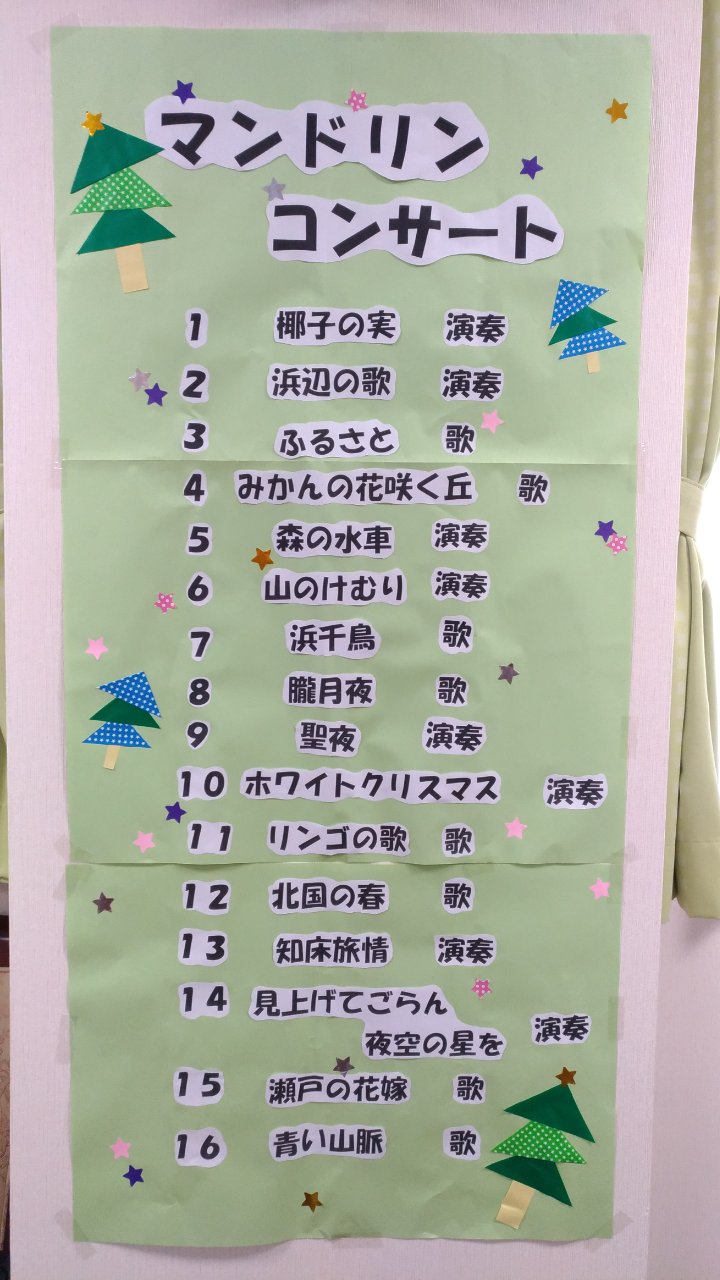 マンドリン
コンサート
1 椰子の実 演奏
2 浜辺の歌 演奏
3 ふるさと 歌
4 みかんの花咲く丘 歌
5 森の水車 演奏
6 山のけむり 演奏
7 浜千鳥 歌
8 朧月夜 歌
9 聖夜 演奏
10 ホワイトクリスマス 演奏
11 リンゴの歌 歌
12 北国の春 歌
13 知床旅情 演奏
14 見上げてごらん
夜空の星を 演奏
15 瀬戸の花嫁 歌
16 青い山脈 歌